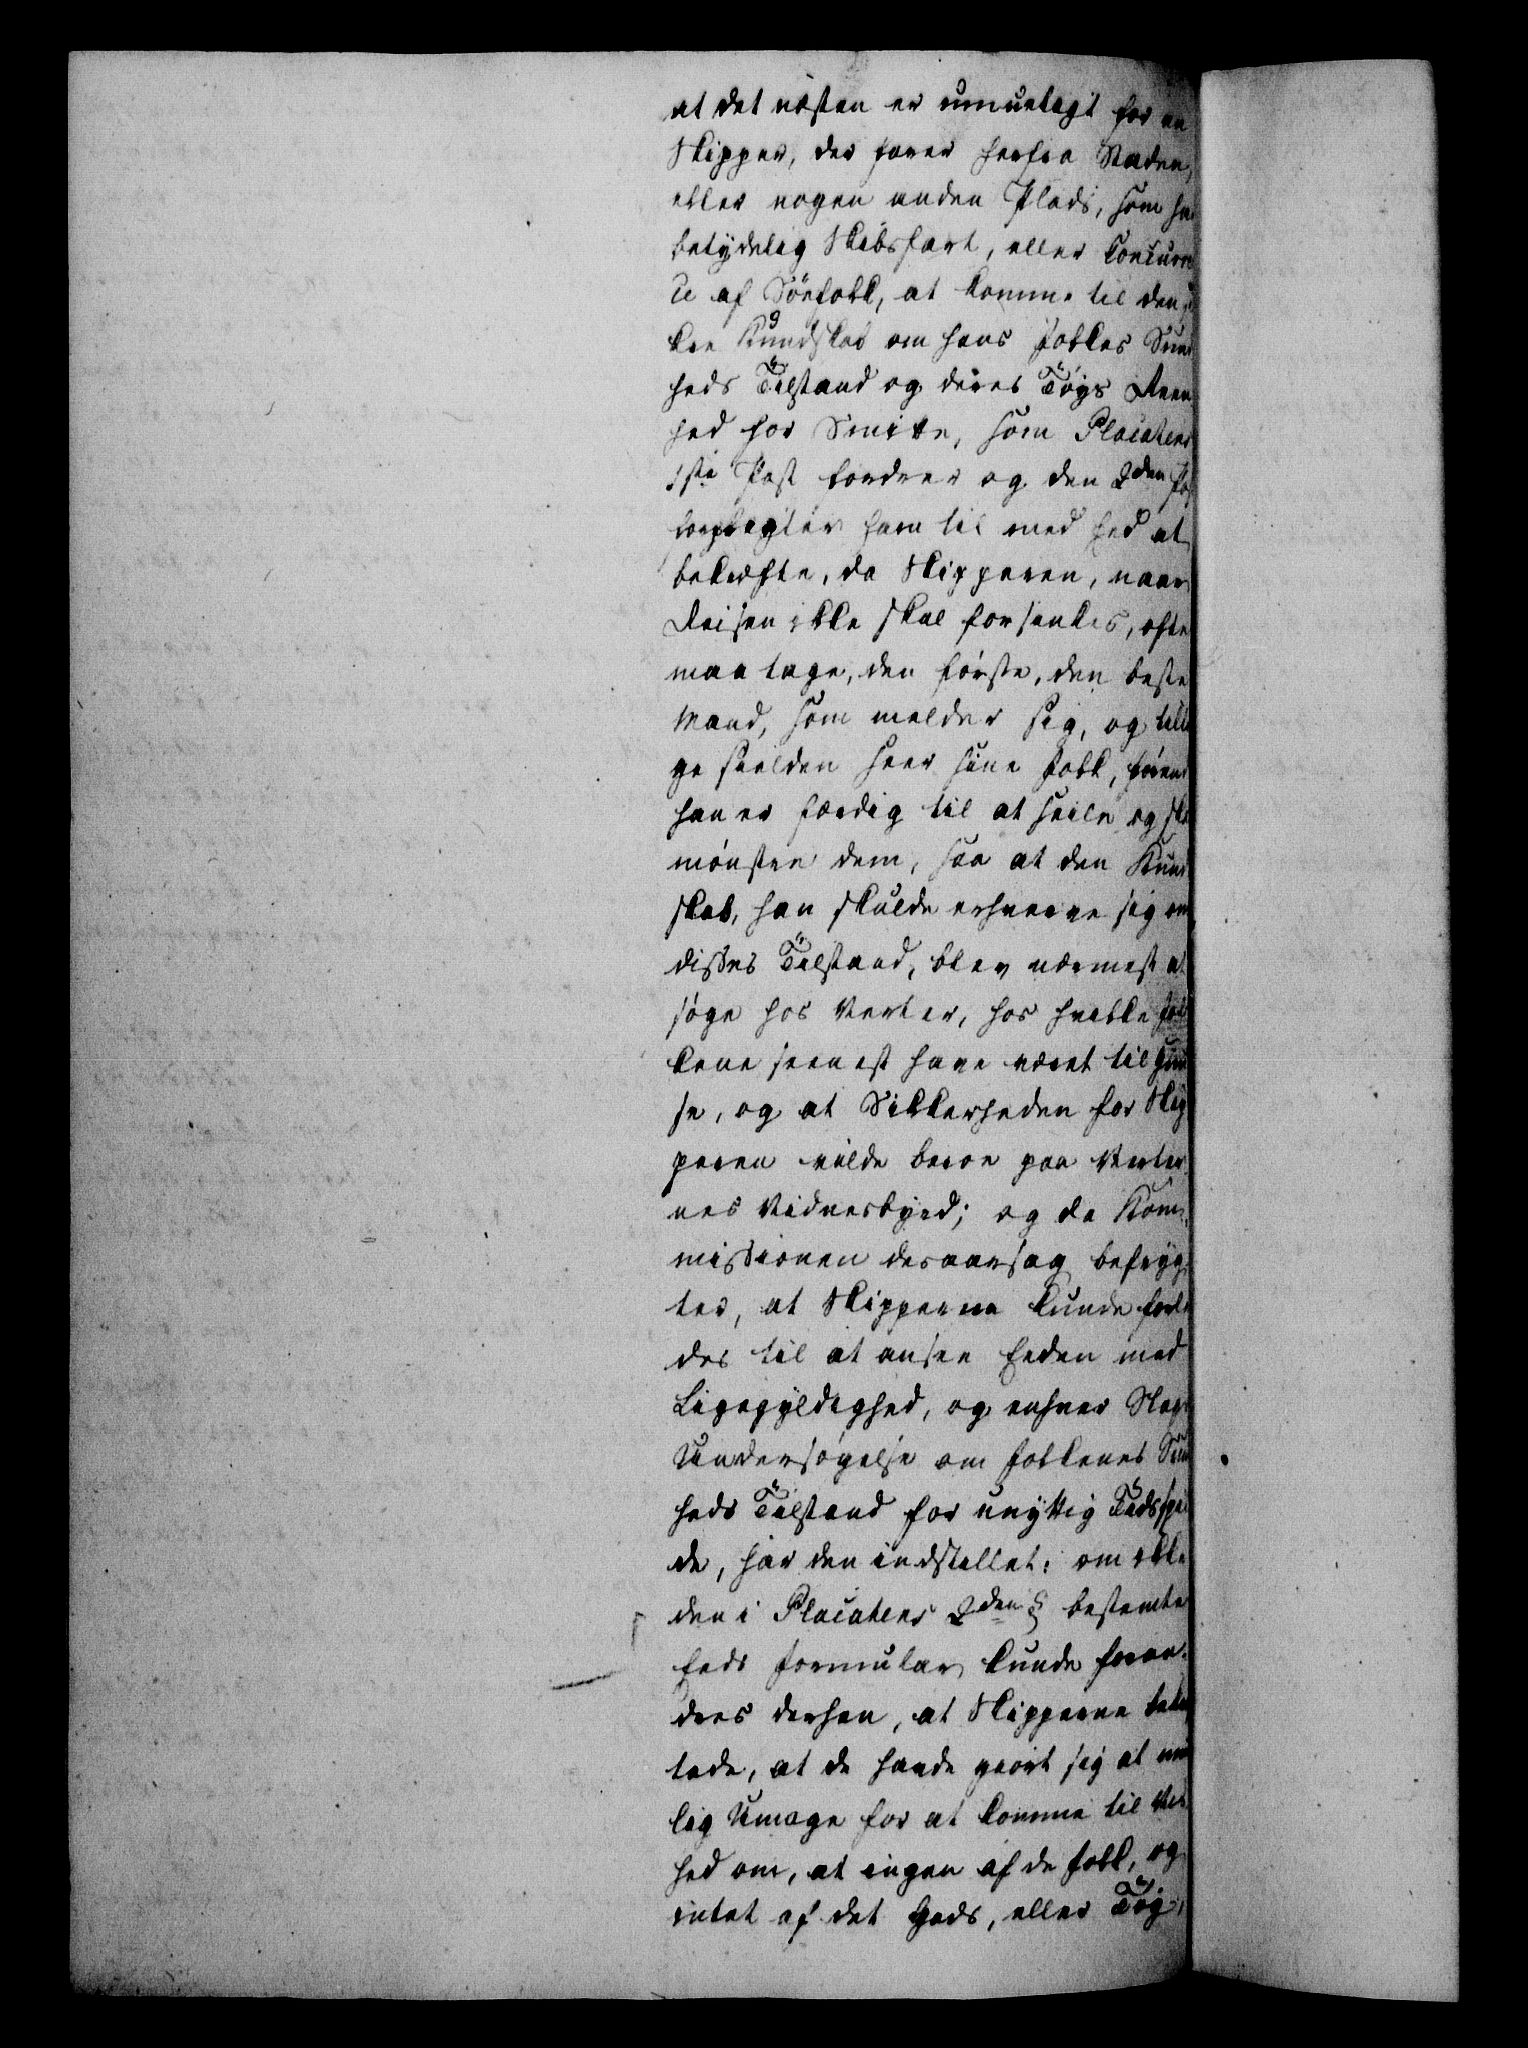 at det næsten er umueligt for en
Skipper, der farer herfra Staden,
eller nogen anden Plads, som har
betydelig Skibsfart, eller Concurren
ce af Söefolk, at komme til den sik
kre Kundskab om hans Folkes Sund
heds Tilstand og deres Töys Reen
hed for Smitte, som Placatens
1ste Post fordrer og den 2den Post
forpligter ham til med Eed at
bekræfte, da Skipperen, naar
Reisen ikke skal forsinkes, ofte
maa tage, den förste, den beste
Mand, som melder sig, og tilli
ge sielden seer sine Folk, förend
han er færdig til at seile og skal
mönstre dem, saa at den Kund
skab, han skulde erhverve sig om
disses Tilstand, blev nærmest at
söge hos Verter, hos hvilke Fol
kene seenest have været til Huu
se, og at Sikkerheden for Skip
peren vilde beroe paa Verter
nes Vidnesbyrd; og da Kom
missionen desaarsag befryg
ter, at Skipperne kunde forle
des til at ansee Eeden med
Ligegyldighed, og enhver Slags
Undersögelse om Folkenes Sund
heds Tilstand for unyttig Tidsspil
de, har den indstillet: om ikke
den i Placatens 2den § bestemte
Eeds Formular kunde foran
dres derhen, at Skipperne bekræf
tede, at de havde giort sig al mu
lig Umage for at komme til Vis
hed om, at ingen af de Folk, og
intet af det Gods, eller Töy,